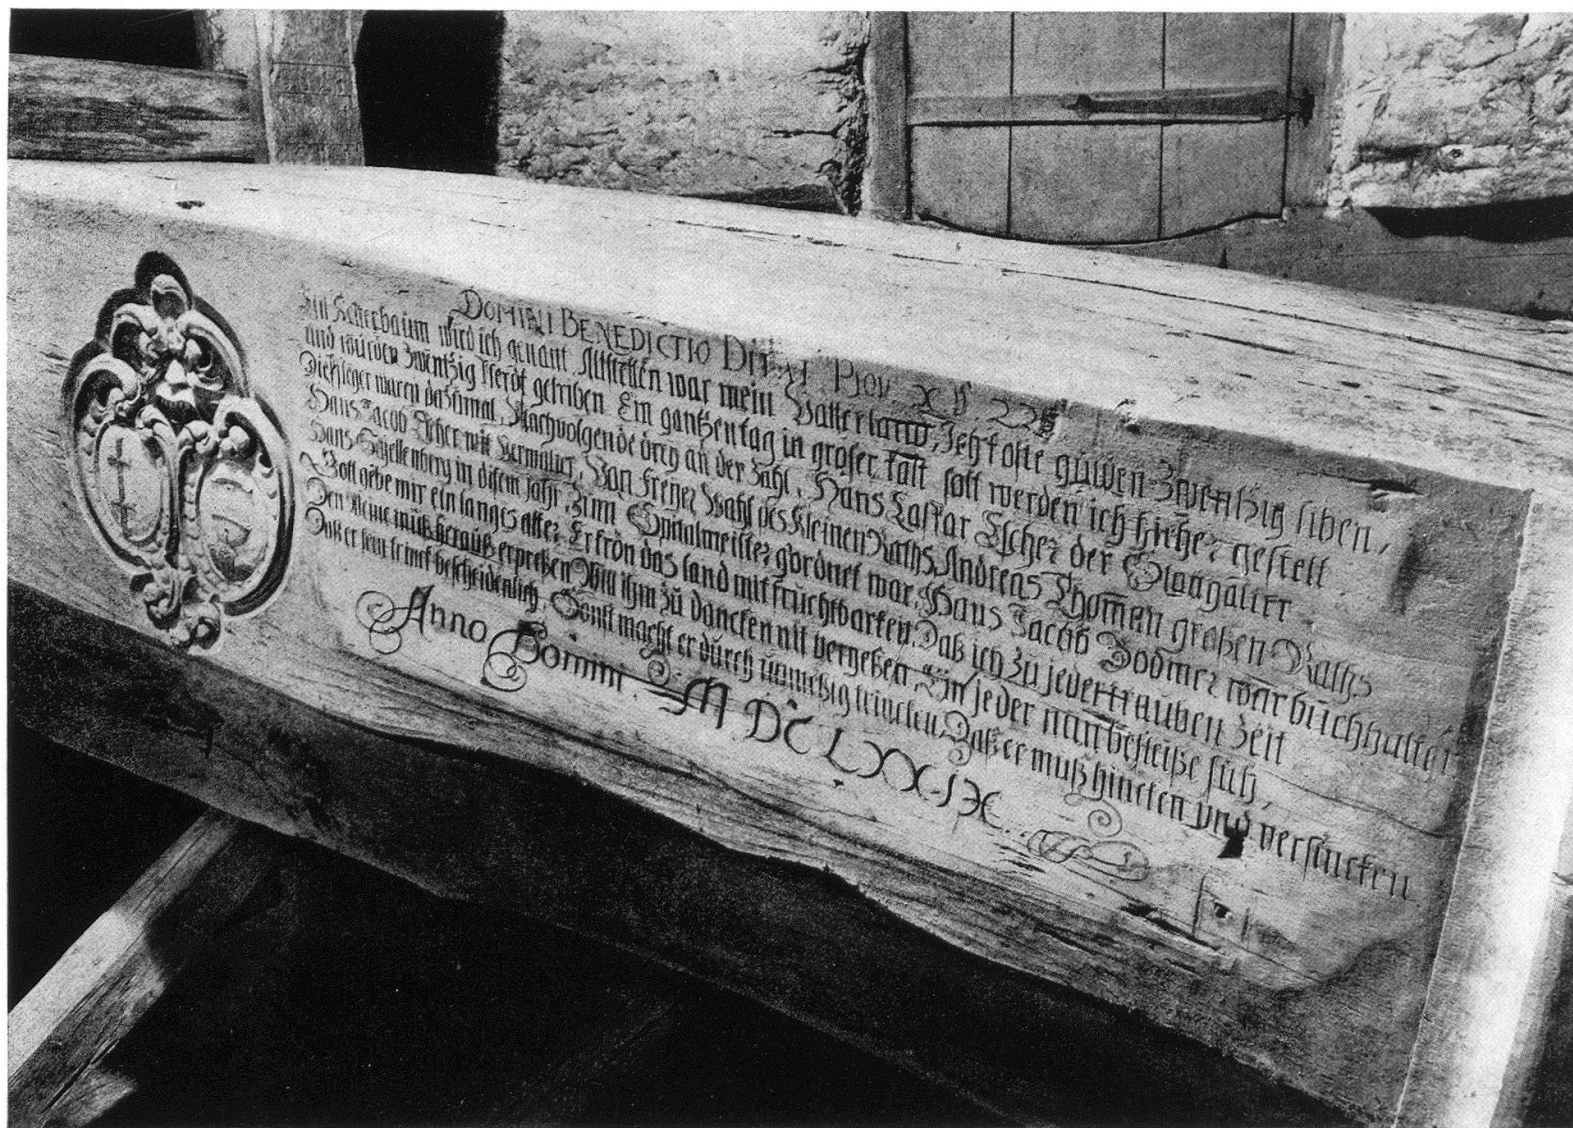 DOMINI BENEDICTIO DITAT Prov X V 22
Ein Kelterbaum wird ich genant Altstetten war mein Vatterland, Ich koste gulden Zwentzig siben,
und wurden Zwentzig Pferdt getriben Ein gantzen tag in groser last solt werden ich hieher gestelt
Die Pfleger waren dazumal, Nachvolgende drey an der Zahl, Hans Caspar Escher der Statthalter
Hans Jacob Escher mit Vermelter, Von Freyer Wahl des Kleinen Raths Andreas Thomen großen Raths
Hans Schellenberg in disem Jahr, Zum Spitalmeister gordnet war, Hans Jacob Bodmer war buchhalter
Gott gebe mir ein langes alter, Er krön das land mit fruchtbarkeit, Daß ich zu jeder trauben Zeit
Den Weine müß herauß erpreßen Will ihm zu dancken nit vergeßen Ein jeder nun befleiße sich,
Daß er sein trinck bescheidenlich, Sonst macht er durch unmeßig trincken, Daß er muß hincken und versincken
Anno Domini. MDCLXXIX.